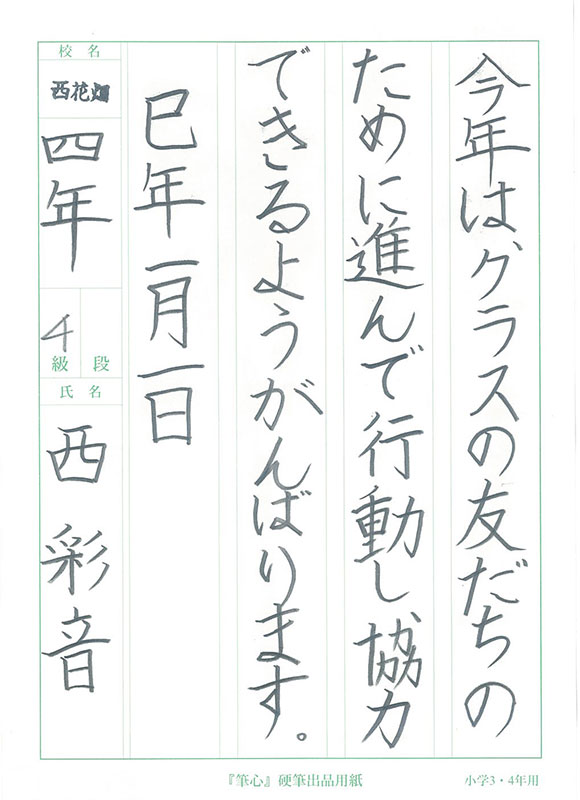 今年は、クラスの友だちの
ために進んで行動し、協力
できるようがんばります。
巳年一月一日
校名
西花畑
四年
4
級 段
氏名
西 彩音
『筆心』硬筆出品用紙
小学3・4年用